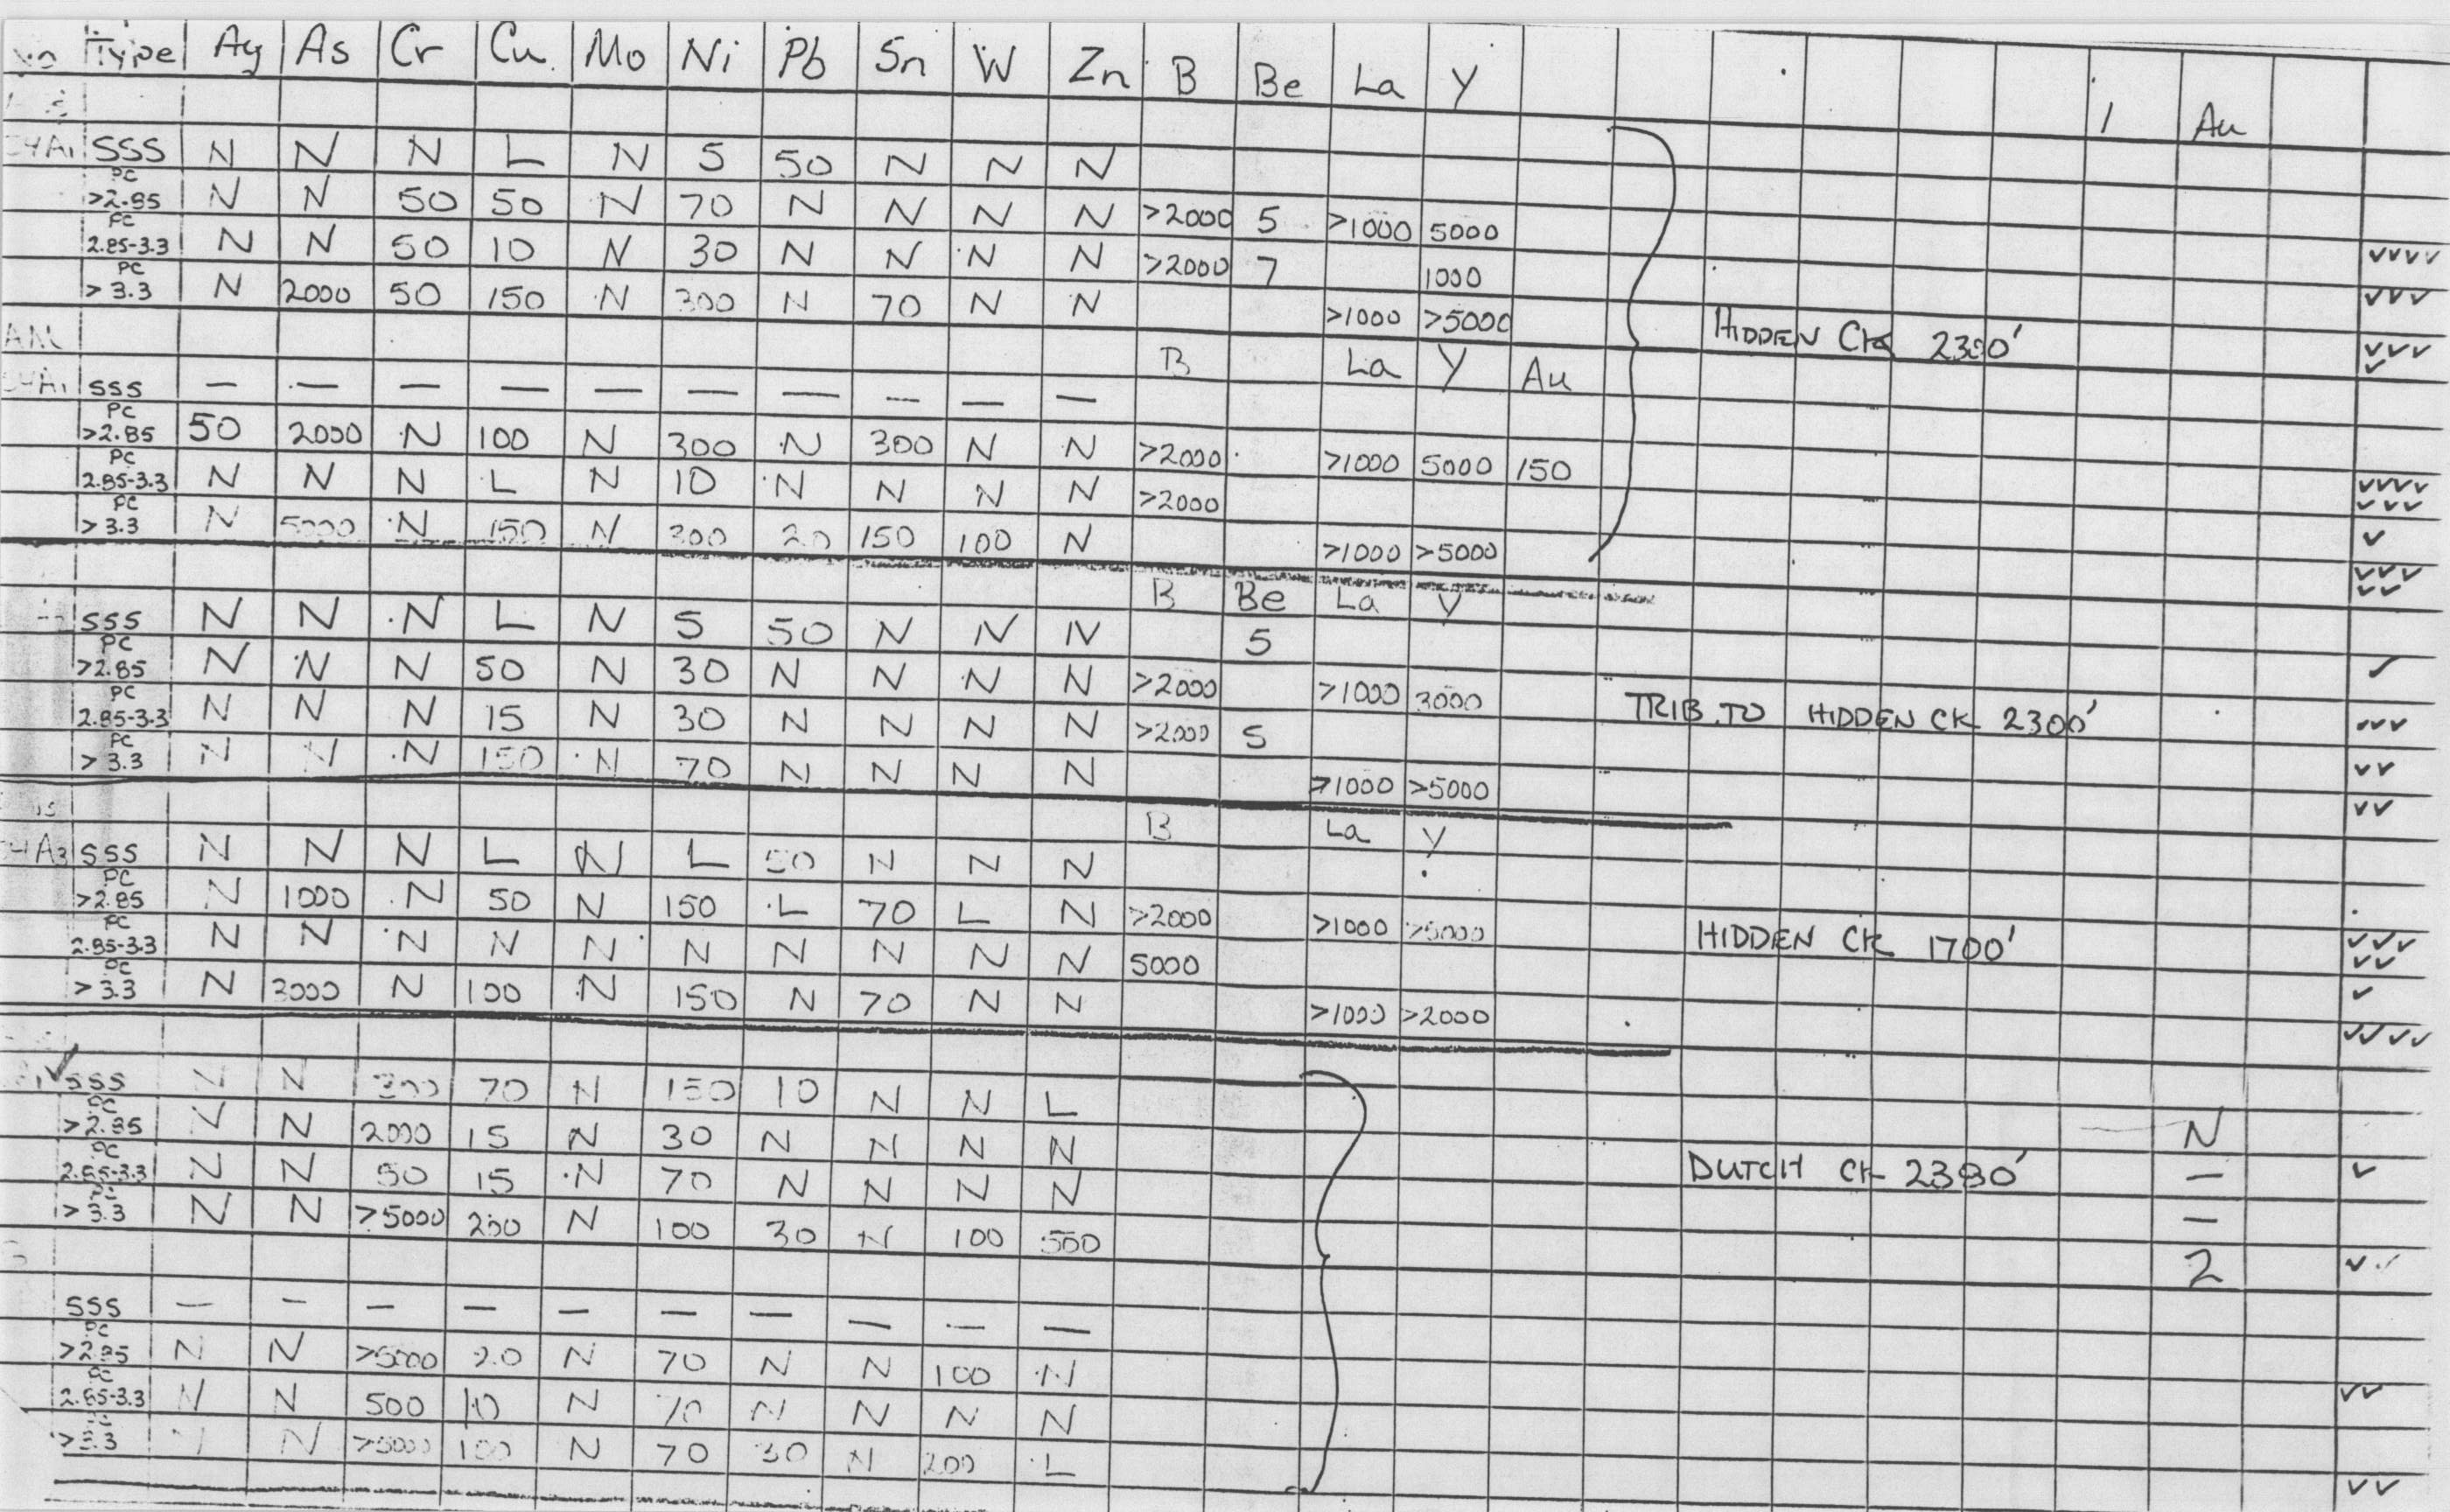 Type Ag As Cr Cu Mo Ni Pb Sn W Zn B Be La Y Au
SSS N N N L N 5 50 N N N
PC >2.85 N N 50 50 N 70 N N N N >2000 5 >1000 5000
PC 2.85-3.3 N N 50 10 N 30 N N N N >2000 7 1000
PC >3.3 N 2000 50 150 N 300 N 70 N N >1000 >5000
HIDDEN CK
B La Y Au
SSS — — — — — — — — — —
PC >2.85 50 2000 N 100 N 300 N 300 N N >2000 >1000 5000 150
PC 2.85-3.3 N N N L N 10 N N N N >2000
PC >3.3 N 5000 N 150 N 300 20 150 100 N >1000 >5000
B Be La Y
SSS N N N L N 5 50 N N N 5
PC >2.85 N N N 50 N 30 N N N N >2000 >1000 3000
TRIB. TO HIDDEN CK 2300'
PC 2.85-3.3 N N N 15 N 30 N N N N >2000 5
PC >3.3 N N N 150 N 70 N N N N >1000 >5000
B La Y
SSS N N N L N L 50 N N N
PC >2.85 N 1000 N 50 N 150 L 70 L N >2000 >1000 >5000
HIDDEN CK 1700'
PC 2.85-3.3 N N N N N N N N N N 5000
PC >3.3 N 3000 N 100 N 150 N 70 N N >1000 >2000
SSS N N 300 70 N 150 10 N N L N
PC >2.85 N N 2000 15 N 30 N N N N —
DUTCH CK
PC 2.85-3.3 N N 50 15 N 70 N N N N —
PC >3.3 N N >5000 200 N 100 30 N 100 500 2
SSS — — — — — — — — — —
PC >2.85 N N >5000 20 N 70 N N 100 N
PC 2.85-3.3 N N 500 10 N 70 N N N N
>3.3 N N >5000 100 N 70 30 N 200 L